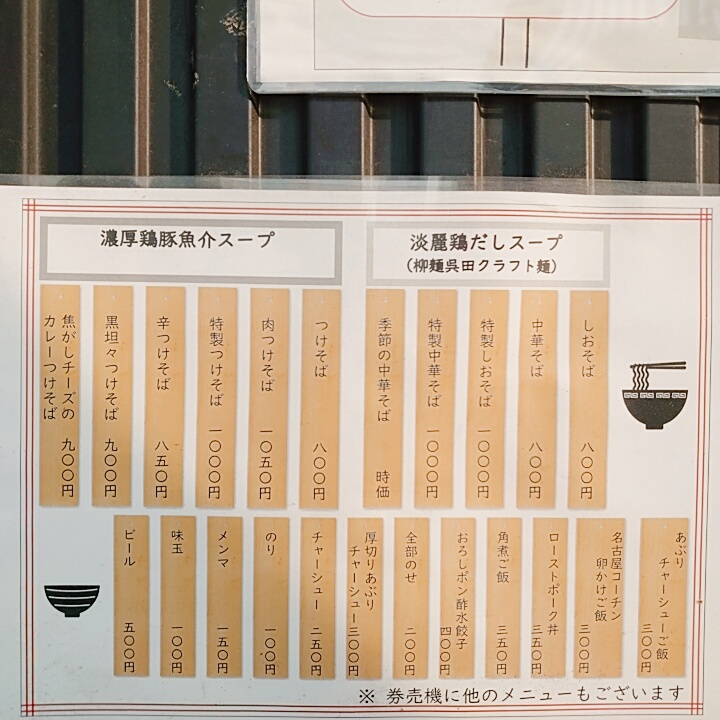 淡麗鶏だしスープ
(柳麺呉田クラフト麺)
しおそば 八〇〇円
中華そば 八〇〇円
特製しおそば 一〇〇〇円
特製中華そば 一〇〇〇円
季節の中華そば 時価
濃厚鶏豚魚介スープ
つけそば 八〇〇円
肉つけそば 一〇五〇円
特製つけそば 一〇〇〇円
辛つけそば 八五〇円
黒坦々つけそば 九〇〇円
焦がしチーズの
カレーつけそば 九〇〇円
あぶり
チャーシューご飯
三〇〇円
名古屋コーチン
卵かけご飯
三〇〇円
ローストポーク丼 三五〇円
角煮ご飯 三五〇円
おろしポン酢水餃子
四〇〇円
全部のせ 二〇〇円
厚切りあぶり
チャーシュー 三〇〇円
チャーシュー 二五〇円
のり 一〇〇円
メンマ 一五〇円
味玉 一〇〇円
ビール 五〇〇円
※ 券売機に他のメニューもございます